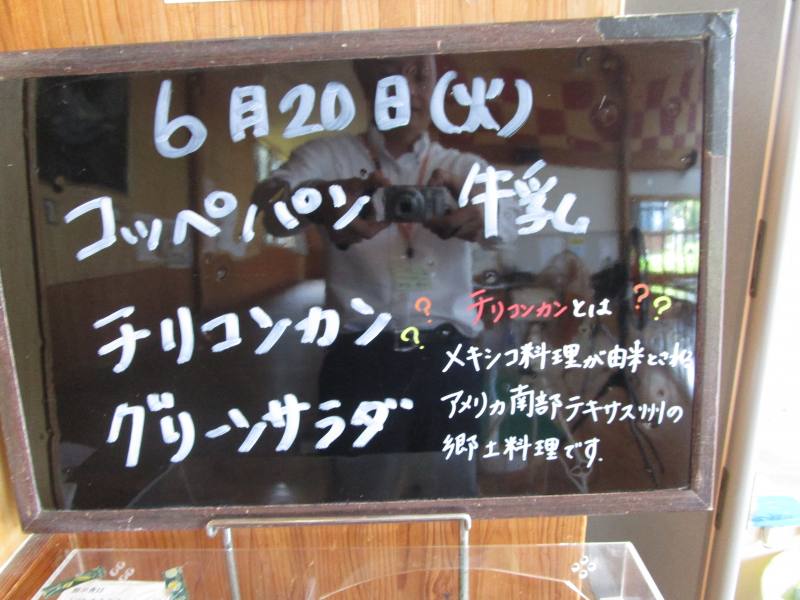 6月20日(火)
コッペパン 牛乳
チリコンカン??
グリーンサラダ
チリコンカンとは??
メキシコ料理が由来とされ
アメリカ南部テキサス州の
郷土料理です.